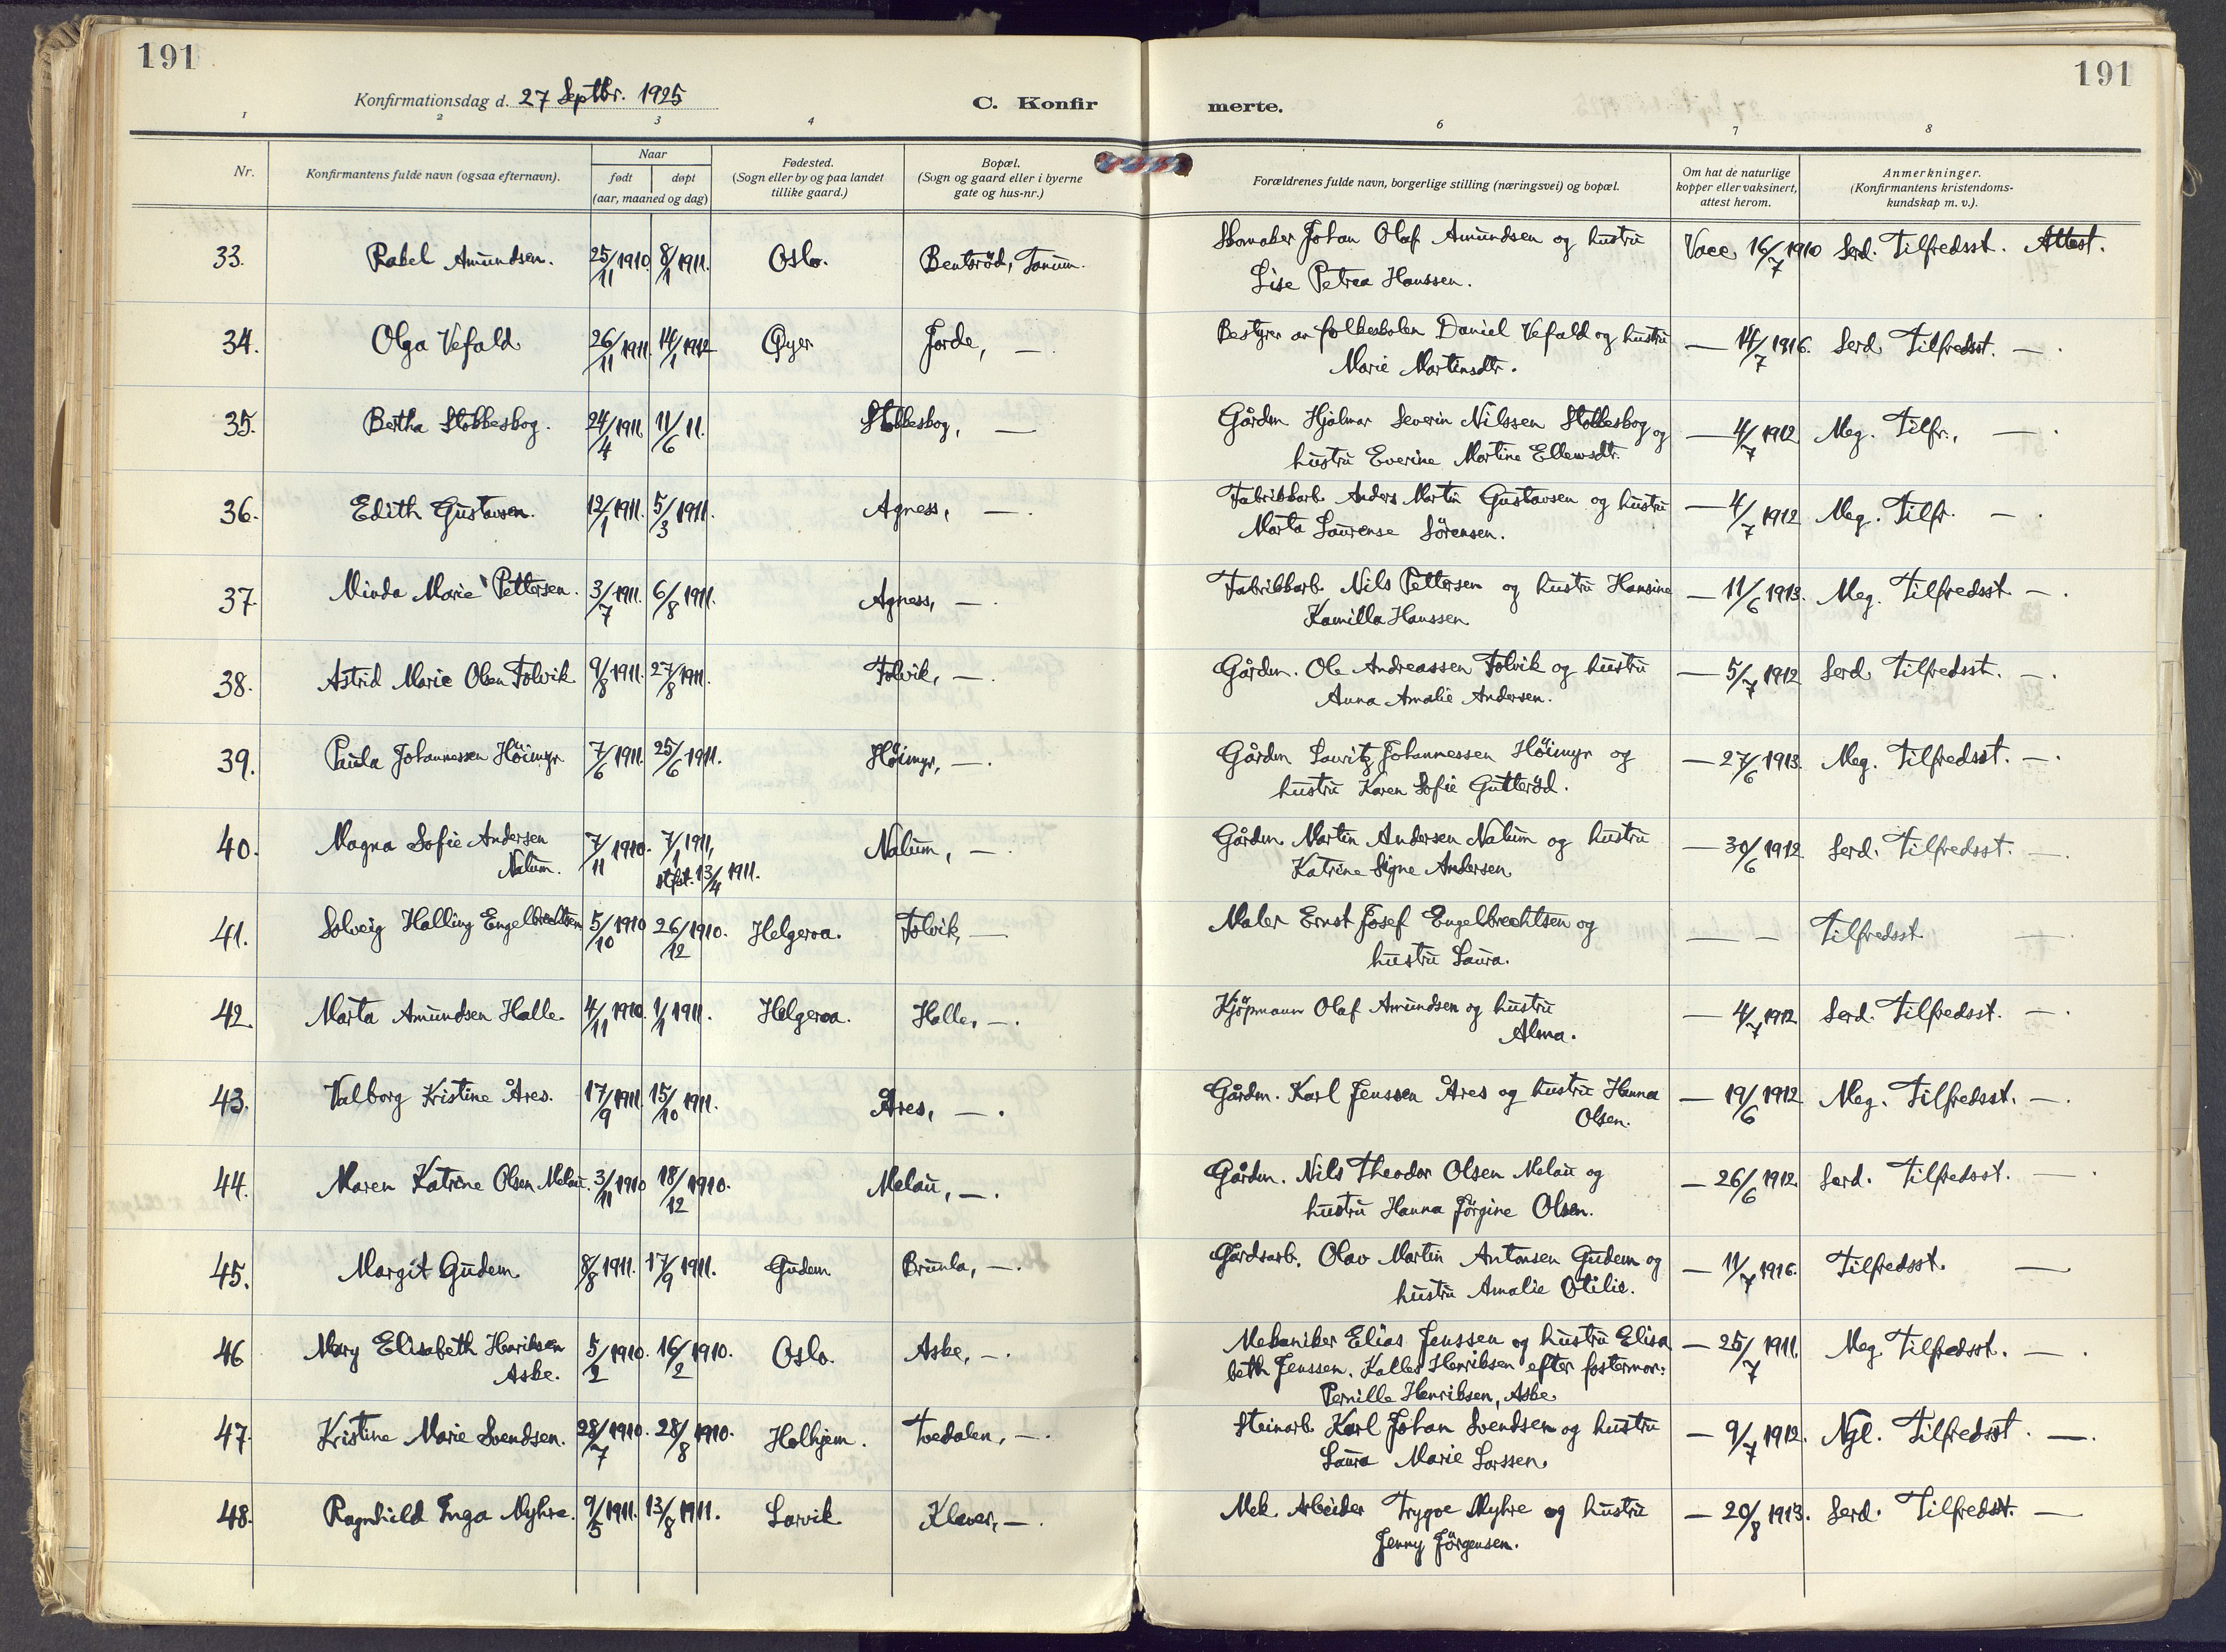 191
191
Konfirmationsdag d. 27 Septbr. 1925
C. Konfir
merte.
1
2
3
4
6
7
8
Nr.
Konfirmantens fulde navn (ogsaa efternavn).
Naar
født
døpt
(aar, maaned og dag)
Fødested.
(Sogn eller by og paa landet
tillike gaard.)
Bopæl.
(Sogn og gaard eller i byerne
gate og hus-nr.)
Forældrenes fulde navn, borgerlige stilling (næringsvei) og bopæl.
Om hat de naturlige
kopper eller vaksinert,
attest herom.
Anmerkninger.
(Konfirmantens kristendoms-
kundskap m. v.).
33. Rakel Amundsen. 25/11 1910. 8/1 1911. Oslo. Bentsröd, Tanum. Skomaker Johan Olaf Amundsen og hustru Vacc. 16/7 1910 Serd. Tilfredsst. Attest.
Lise Petrea Hanssen.
34. Olga Vefald 26/11 1911. 14/1 1912 Öyer Jorde, — Bestyrer av folkeskolen Daniel Vefald og hustru — 14/7 1916. Serd. Tilfredsst. — .
Marie Martinsdtr.
35. Bertha Stokkeskog. 24/4 1911. 11/6 11. Stokkeskog, — Gårdm. Hjalmar Severin Nilssen Stokkeskog og — 4/7 1912 Meg. Tilfr., — .
hustru Everine Martine Ellevsdtr.
36. Edith Gustavsen. 12/1 1911. 5/3 1911. Agness, — . Fabrikkarb. Anders Martin Gustavsen og hustru — 4/7 1912 Meg. Tilfr. — .
Marta Laurense Sörensen.
37. Minda Marie Pettersen. 3/7 1911. 6/8 1911. Agness, — . Fabrikkarb. Nils Pettersen og hustru Hansine — 11/6 1913. Meg. Tilfredsst. — .
Kamilla Hanssen
38. Astrid Marie Olsen Folvik 9/8 1911. 27/8 1911. Folvik, — . Gårdm. Ole Andreassen Folvik og hustru — 5/7 1912 Serd. Tilfredsst. — .
Anna Amalie Andersen.
39. Paula Johannessen Höimyr 7/6 1911. 25/6 1911. Höimyr, — . Gårdm Lauritz Johannessen Höimyr og — 27/6 1913. Meg. Tilfredsst. — .
hustru Karen Sofie Gutteröd.
40. Magna Sofie Andersen 7/11 1910. 7/1 1911, Nalum, — . Gårdm. Martin Andersen Nalum og hustru — 30/6 1912. Serd. Tilfredsst. — .
Nalum. stfst. 13/4 1911. Katrine Signe Andersen
41. Solveig Halling Engelbrechtsen 5/10 1910 26/12 1910. Helgeroa. Folvik, — Maler Ernst Josef Engelbrechtsen og — — Tilfredsst. — .
hustru Laura.
42. Marta Amundsen Halle. 4/11 1910. 1/1 1911. Helgeroa. Halle, — . Kjöpmann Olaf Amundsen og hustru — 4/7 1912 Serd. Tilfredsst. — .
Alma.
43. Valborg Kristine Åres. 17/9 1911. 15/10 1911. Åres, — . Gårdm. Karl Jenssen Åres og hustru Hanna — 19/6 1912 Meg. Tilfredsst. — .
Olsen.
44. Maren Katrine Olsen Melau. 3/11 1910 18/12 1910. Melau, — . Gårdm. Nils Theodor Olsen Melau og — 26/6 1912. Serd. Tilfredsst. — .
hustru Hanna Jörgine Olsen.
45. Margit Gudem 8/8 1911. 17/9 1911. Gudem Brunla, — . Gårdsarb. Olav Martin Antonsen Gudem og — 11/7 1916. Tilfredsst. —
hustru Amalie Otilie.
46 Mary Elisabeth Henriksen 5/2 1910. 16/2 1910. Oslo. Aske, — . Mekaniker Elias Jenssen og hustru Elisa — 25/7 1911. Meg. Tilfredsst. — .
Aske. beth Jenssen. Kalles Henriksen efter fostermor:
Pernille Henriksen, Aske.
47. Kristine Marie Svendsen. 28/7 1910. 28/8 1910. Holhjem. Tvedalen, — . Steinarb. Karl Johan Svendsen og hustru — 9/7 1912. Ngl. Tilfredsst. — .
Laura Marie Larssen.
48. Ragnhild Inga Myhre. 9/5 1911. 13/8 1911. Larvik Klaver, — . Mek. Arbeider Trygve Myhre og hustru — 20/8 1913. Serd. Tilfredsst. —
Jenny Jörgensen.